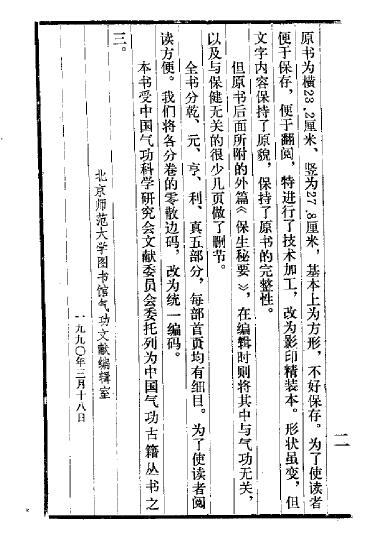 原书为横23.2厘米、竖为27.8厘米，基本上为方形，不好保存。为了使读者
便于保存，便于翻阅，特进行了技术加工，改为影印精装本。形状虽变，但
文字内容保持了原貌，保持了原书的完整性。
但原书后面所附的外篇《保生秘要》，在编辑时则将其中与气功无关，
以及与保健无关的很少几页做了删节。
全书分乾、元、亨、利、真五部分，每部首页均有细目。为了使读者阅
读方便。我们将各分卷的零散边码，改为统一编码。
本书受中国气功科学研究会文献委员会委托列为中国气功古籍丛书之
三。
北京师范大学图书馆气功文献编辑室
一九九〇年三月十八日
二